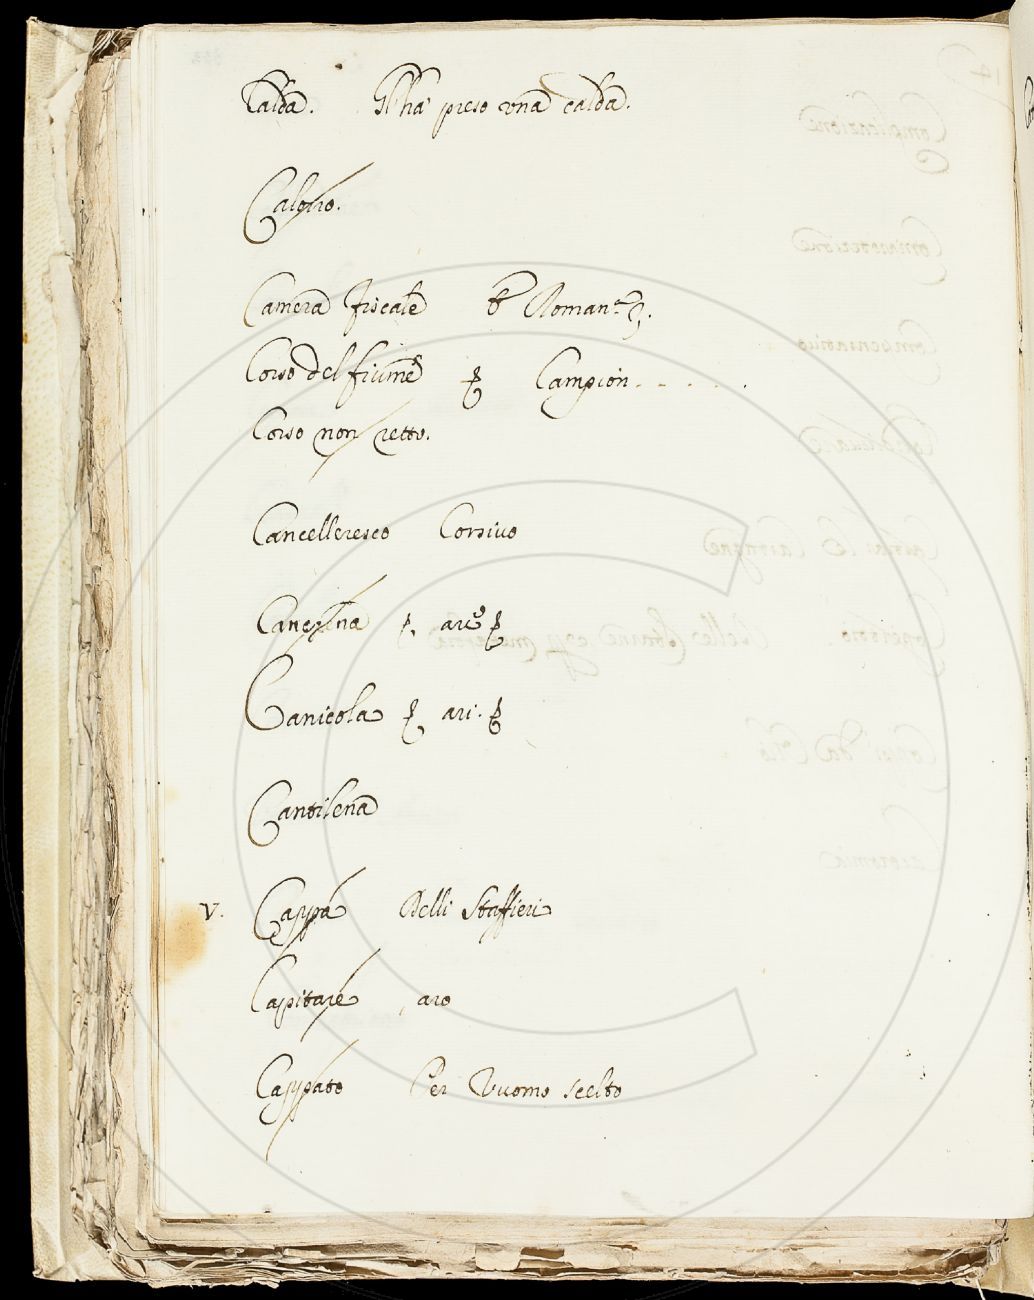 Calda. Gl'ha preso vna calda.
Calorio.
Camera fiscale Roman.
Corso del fiume Campion. - - - - .
Corso non retto.
Cancelleresco Corsiuo
Canerina
Canicola ari.
Cantilena
V. Cappa Delli Staffieri
Capitare aro
Cappato Per Vuomo scelto